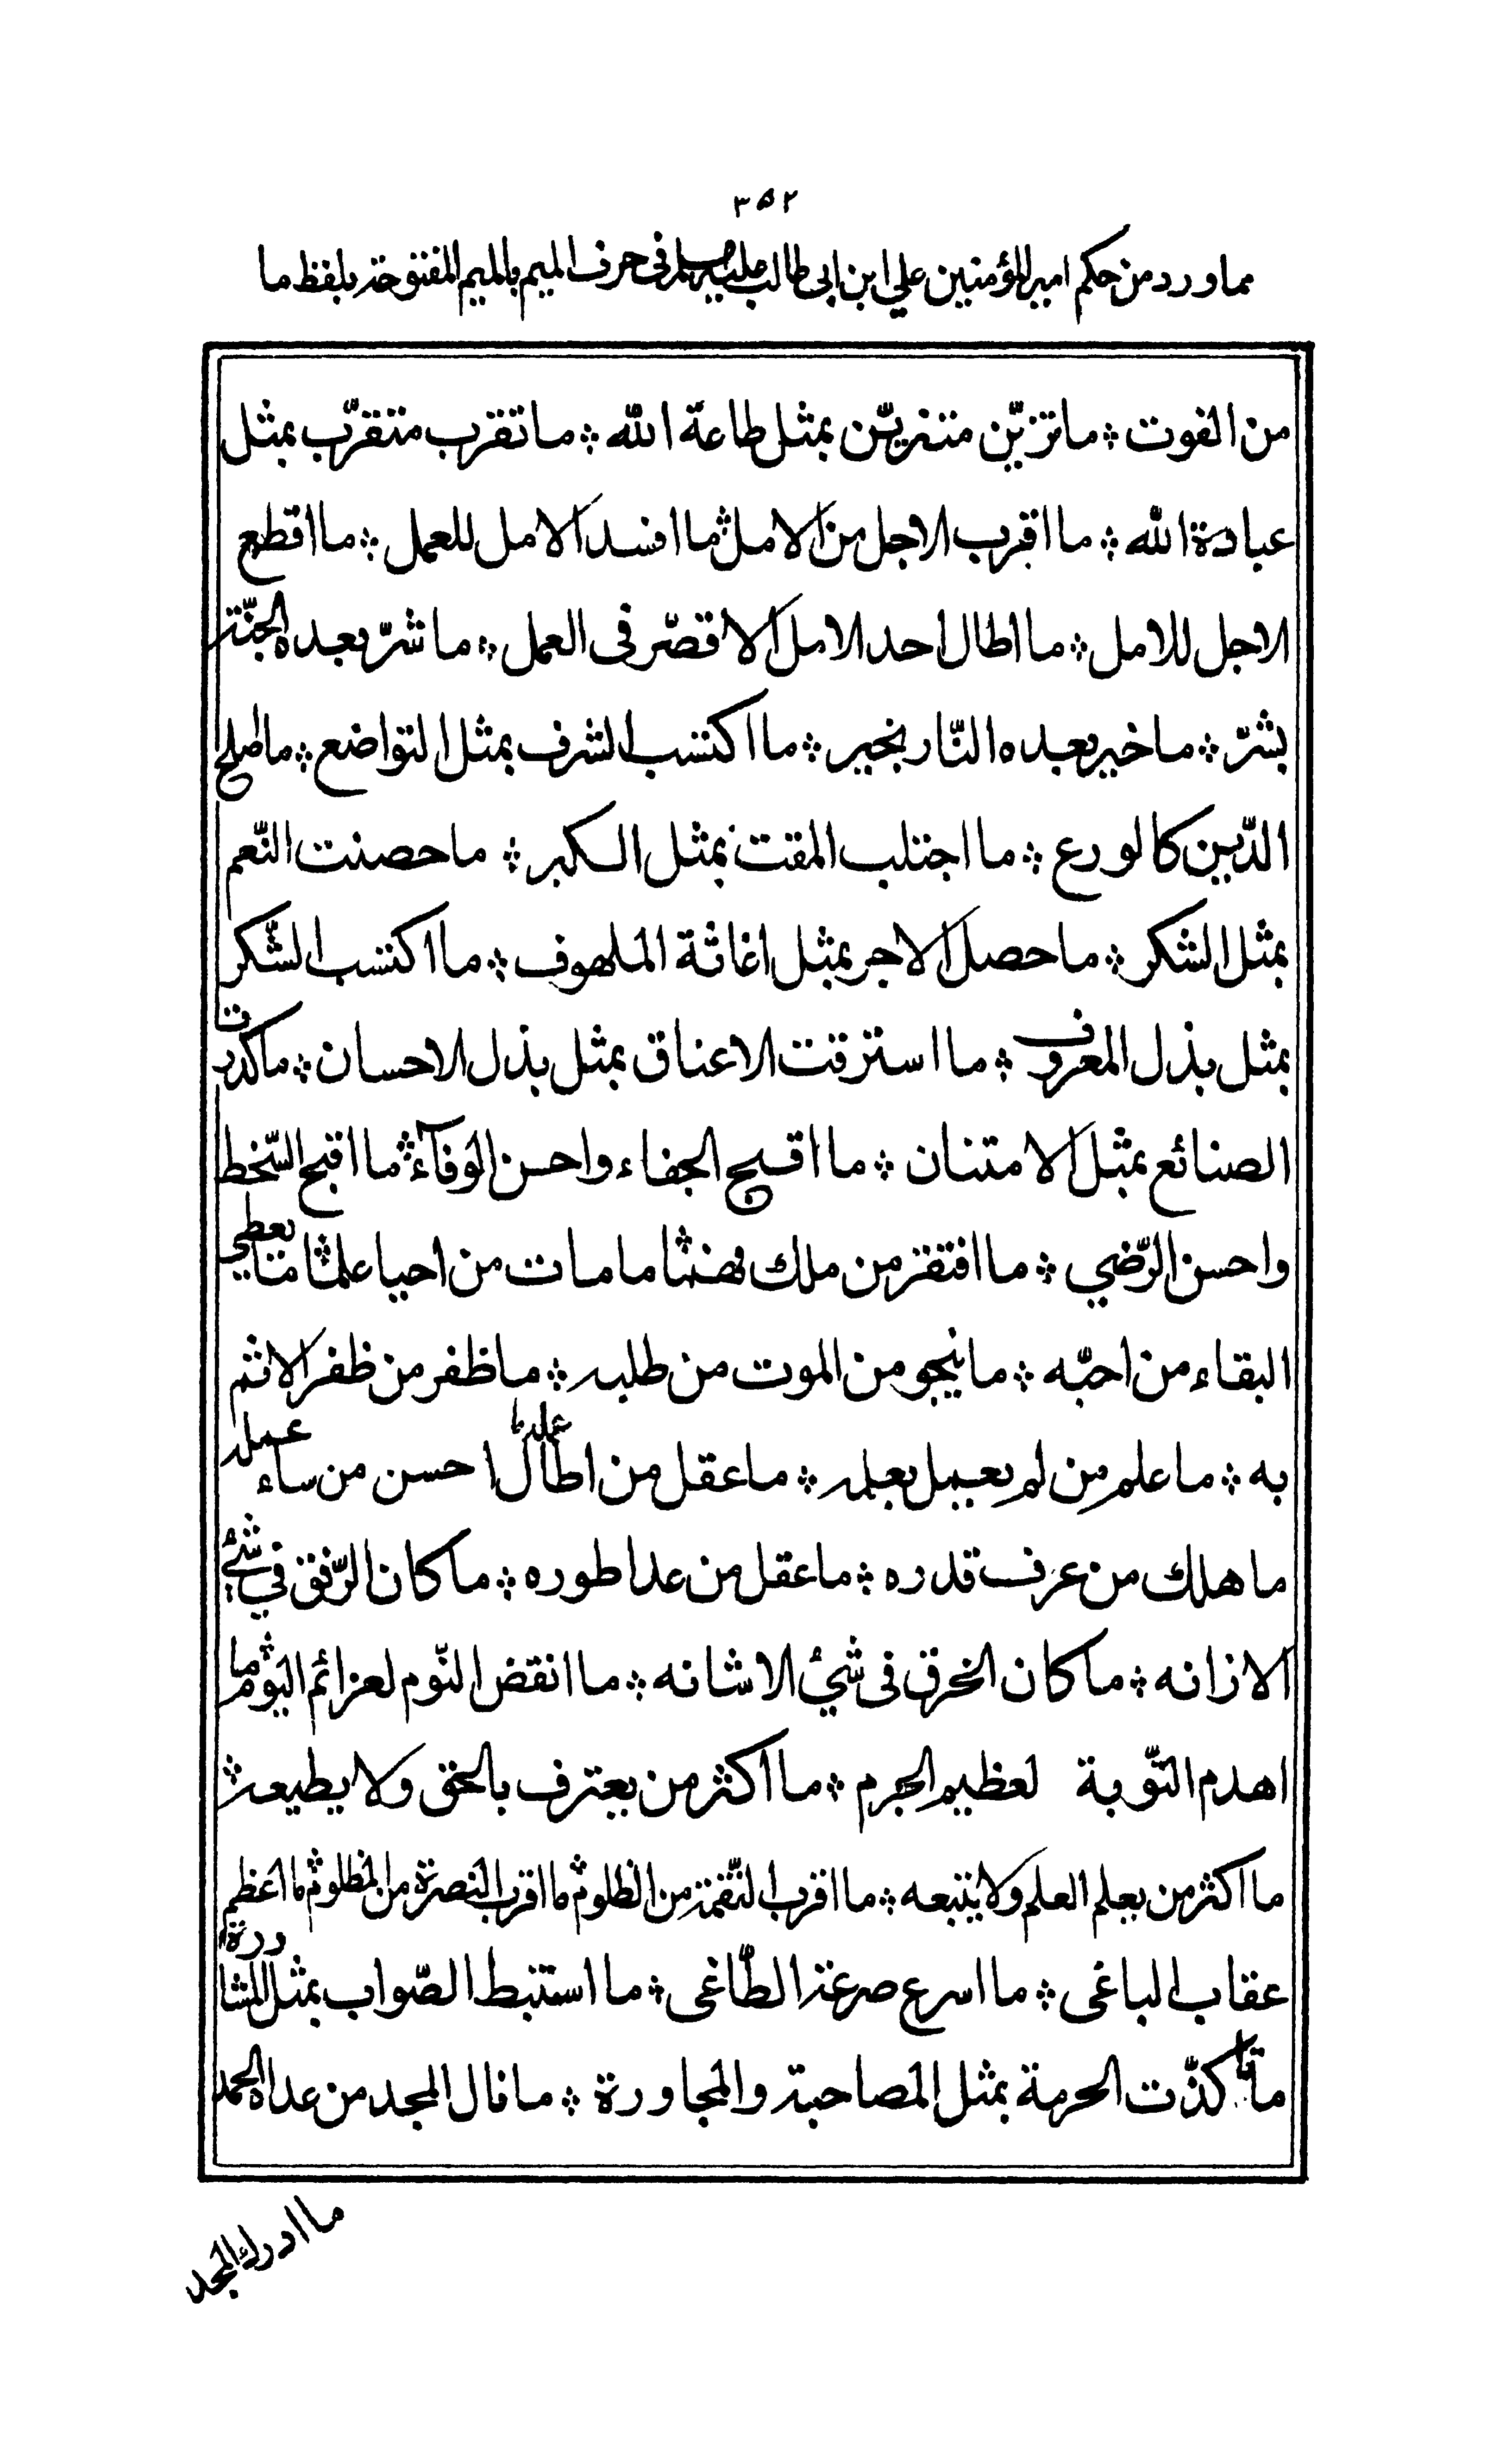 ٣٥٢
مما ورد من حكم امير المؤمنين علي ابن ابى طالب عليه السلم فى حرف الميم بالميم المفتوحة بلفظ ما
من الفوت ۞ ما تزيّن متزيّن بمثل طاعة الله ۞ ما تقرب متقرّب بمثل
عبادة الله ۞ ما اقرب الاجل من الامل ۞ ما افسد الامل للعمل ۞ ما اقطع
الاجل للامل ۞ ما اطال احد الامل الا قصّر فى العمل ۞ ما شرّ بعده الجنّة
بشرّ ۞ ما خير بعده النّار بخير ۞ ما اكتسب الشرف بمثل التواضع ۞ ما اصلح
الدّين كالورع ۞ ما اجتلب المقت بمثل الكبر ۞ ما حصنت النّعم
بمثل الشكر ۞ ما حصل الاجر بمثل اغاثة الملهوف ۞ ما اكتسب الشّكر
بمثل بذل المعروف ۞ ما استرقت الاعناق بمثل بذل الاحسان ۞ ما كدرت
الصنائع بمثل الامتنان ۞ ما اقبح الجفاء واحسن الوفآء ۞ ما اقبح السّخط
واحسن الرّضي ۞ ما افتقر من ملك فهما ۞ ما مات من احيا علما ۞ ما يعطي
البقاء من احبّه ۞ ما ينجو من الموت من طلبه ۞ ما ظفر من ظفر الاثم
به ۞ ما علم من لم يعمل بعلمه ۞ ما عقل من اطال امله ما احسن من ساء عمله
ما هلك من عرف قدره ۞ ما عقل من عدا طوره ۞ ما كان الرّفق في شئ
الا زانه ۞ ما كان الخرق فى شئ الا شانه ۞ ما انقض النّوم لعزائم اليوم ۞ ما
اهدم التّوبة لعظيم الجرم ۞ ما اكثر من يعترف بالحق ولا يطيعه ۞
ما اكثر من يعلم العلم ولا يتبعه ۞ ما اقرب النّقمة من الظلوم ۞ ما اقرب النصرة من المظلوم ۞ ما اعظم
عقاب الباغى ۞ ما اسرع صرعة الطّاغى ۞ ما استنبط الصّواب بمثل المشاورة
ما تأكدّت الحرمة بمثل المصاحبة والمجاورة ۞ ما نال المجد من عداه الحمد
ما ادرك المجد